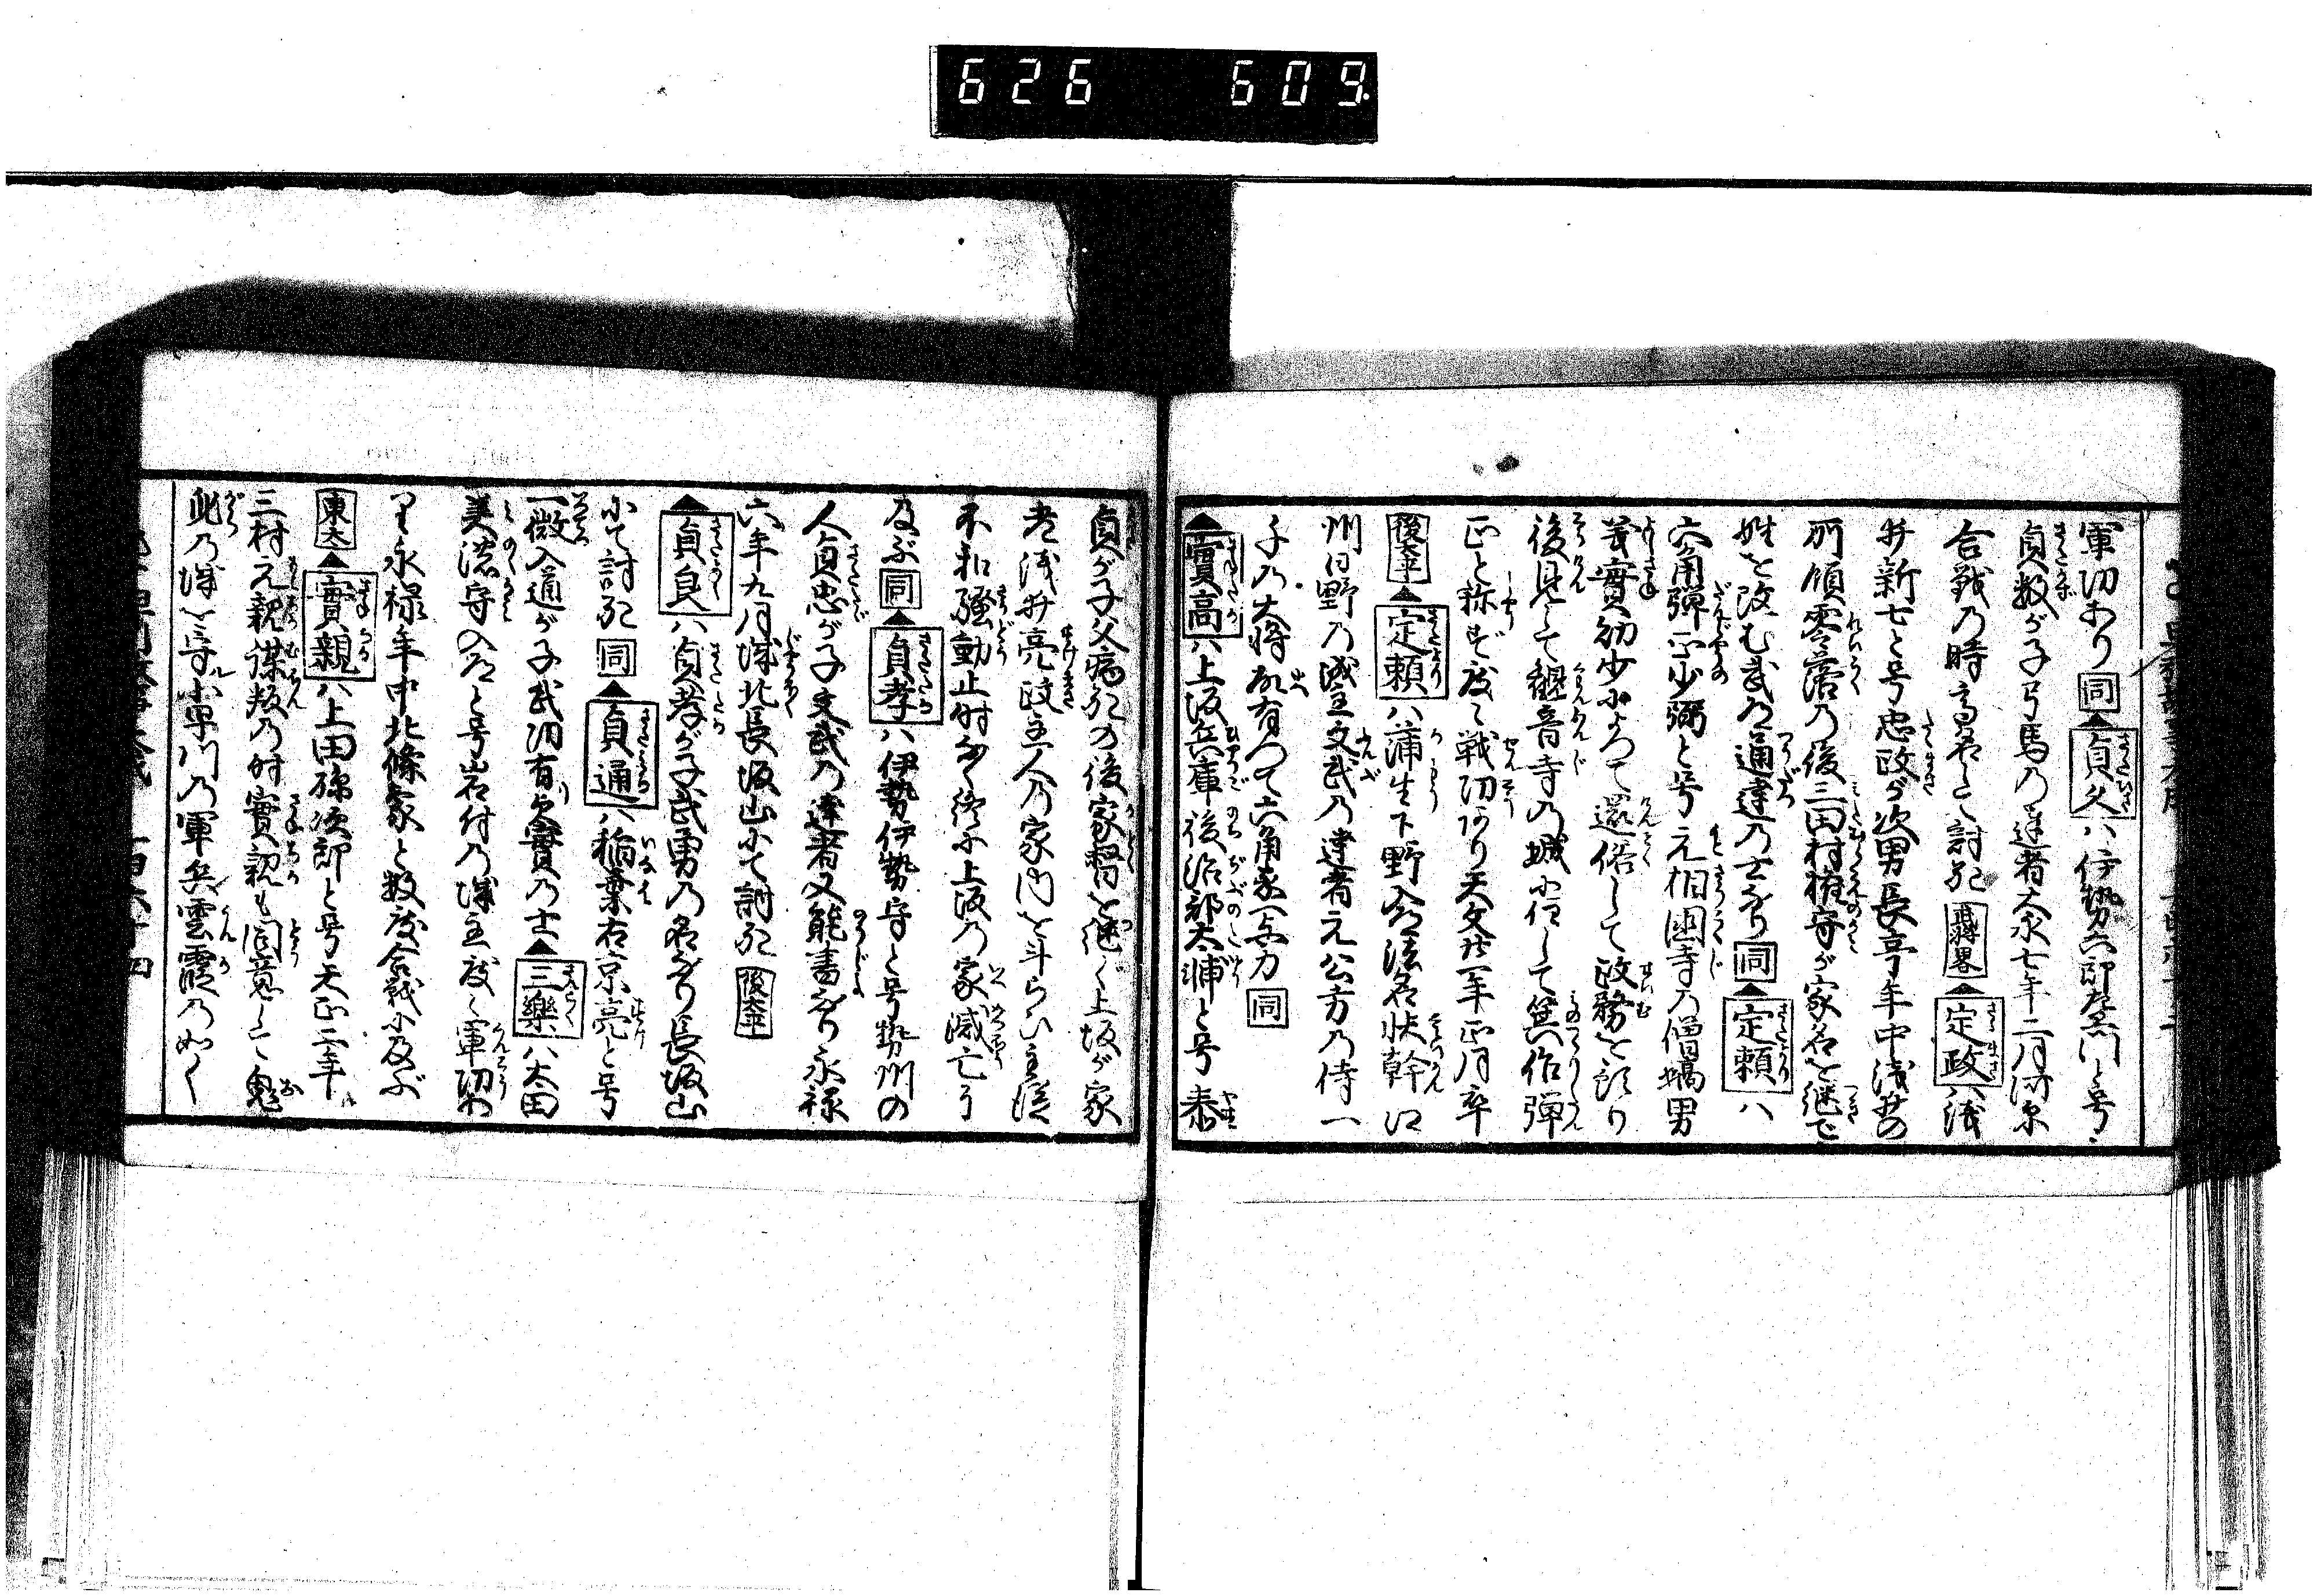 626 609
軍功あり同▲貞久ハ伊勢六郎左衛門と号
貞数が子弓馬の達者大永七年二月
合戦の時高名して討死 ▲定政ハ浅
井新七と号忠政が次男長亨年中浅井の
所領零落の後三田村が家名を継で
姓を改む武道通達の士なり同▲定頼ハ
六角弾正少弼と号元相国寺の僧
義實幼少によつて還俗して政務を
後見して観音寺の城に住して箕作弾
正と称ず度々戦功あり天文廿一年正月卒
後太平▲定頼ハ蒲生下野入道法名快幹江
州日野の城主文武の達者元公方の侍一
子の大将故有つて六角家与力同
▲實高ハ上坂兵庫後治部太浦と号泰
貞が子父病死の後家督を継ぐ上坂が家
老浅井亮政主人の家内を斗らひ主従
不和騒動止時なく終に上坂の家滅亡に
及ぶ同▲貞孝ハ伊勢伊勢守と号勢州の
人貞忠が子文武の達者又能書なり永禄
六年九月城北長坂山にて討死後太平
▲貞良ハ貞孝が子武勇の名あり長坂山
にて討死同▲貞通ハ稲葉右京亮と号
一徹入道が子武功有實の士▲三樂ハ太田
美濃守入道と号岩付の城主度々軍功あ
り永禄年中北條家と数度合戦に及ぶ
東太▲實親ハ上田孫次郎と号天正二年
三村元親謀叛の時實親も同意して鬼
此の城を守小早川の軍兵雲霞の如く